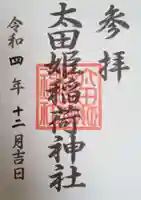 参拝
太田姫稲荷神社
令和四年十二月吉日